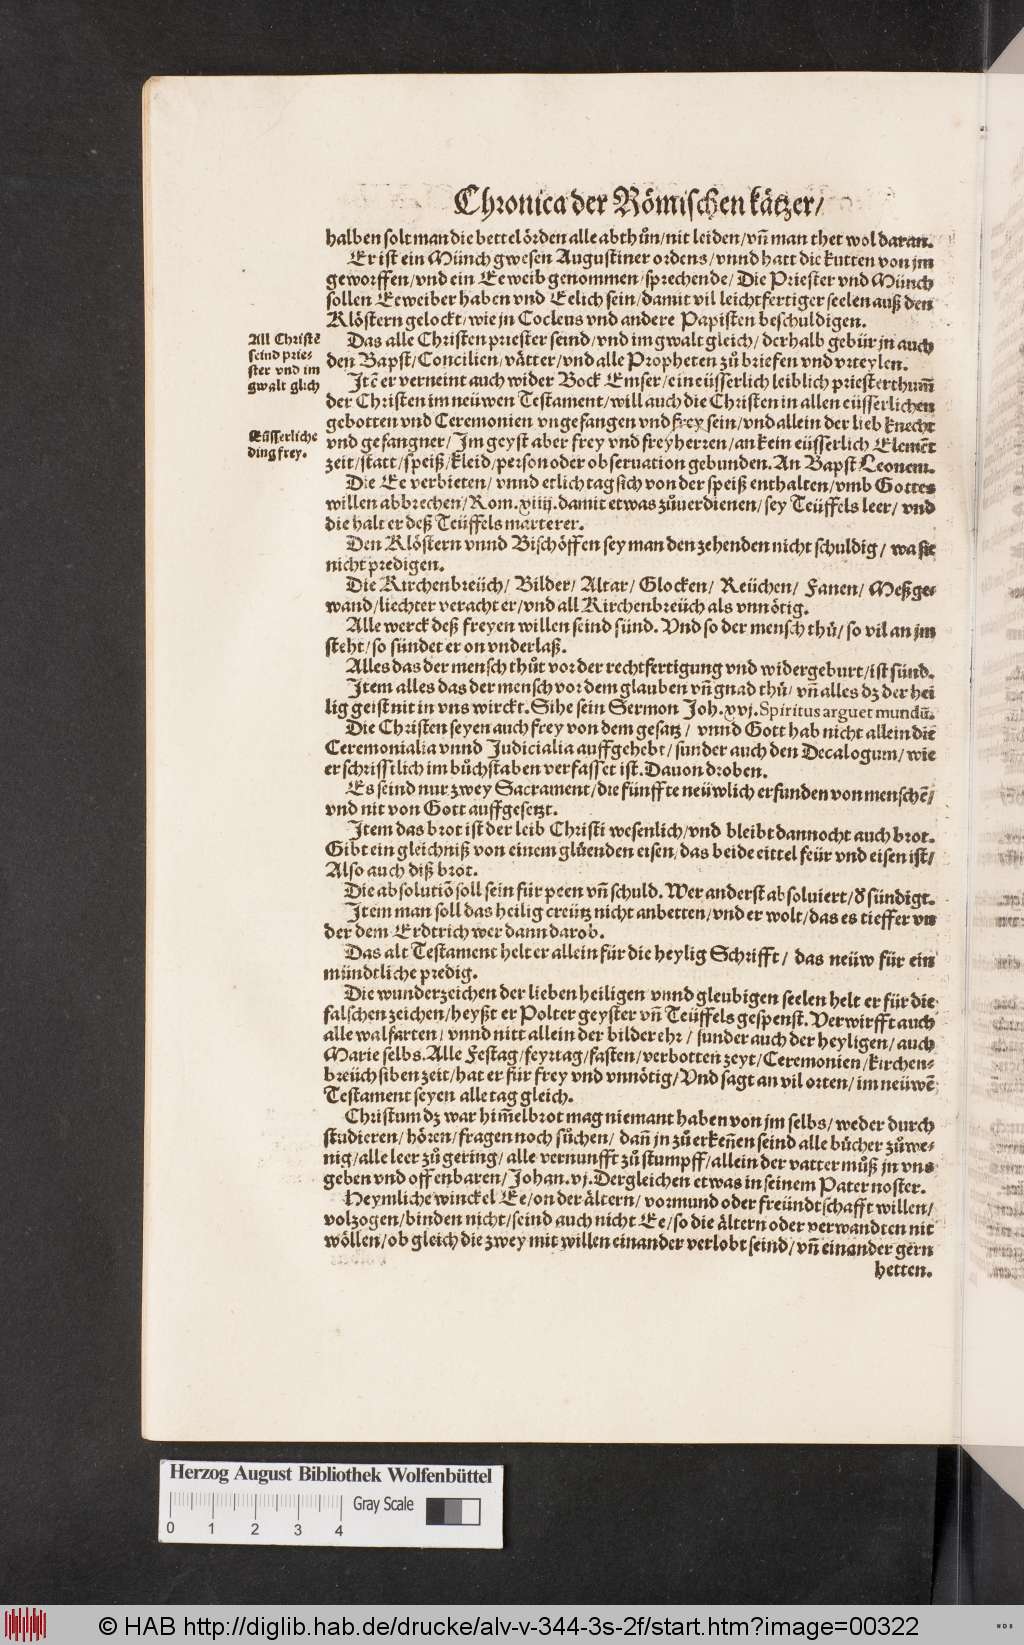 Chronica der Römischen kätzer/
halben solt man die bettel örden alle abthůn/nit leiden/vñ man thet wol daran.
Er ist ein Münch gwesen Augustiner ordens/vnnd hatt die kutten von jm
geworffen/vnd ein Eeweib genommen/sprechende/Die Priester vnd Münch
sollen Eeweiber haben vnd Eelich sein/damit vil leichtfertiger seelen auß den
Klöstern gelockt/wie jn Cocleus vnd andere Papisten beschuldigen.
All Christẽ
seind prie-
ster vnd im
gwalt glich
Das alle Christen priester seind/vnd im gwalt gleich/derhalb gebür jn auch
den Bapst/Concilien/vätter/vnd alle Propheten zů briefen vnd vrteylen.
Itẽ er verneint auch wider Bock Emser/ein eüsserlich leiblich priesterthum̃
der Christen im neüwen Testament/will auch die Christen in allen eüsserlichen
gebotten vnd Ceremonien vngefangen vnd frey sein/vnd allein der lieb knecht
Eüsserliche
ding frey.
vnd gefangner/Im geyst aber frey vnd freyherren/an kein eüsserlich Elemẽt
zeit/statt/speiß/kleid/person oder obseruation gebunden. An Bapst Leonem.
Die Ee verbieten/vnnd etlich tag sich von der speiß enthalten/vmb Gottes
willen abbrechen/Rom.xiiij.damit etwas zůuerdienen/sey Teüffels leer/vnd
die halt er deß Teüffels marterer.
Den Klöstern vnnd Bischöffen sey man den zehenden nicht schuldig/wa sie
nicht predigen.
Die Kirchenbreüch/ Bilder/ Altar/ Glocken/ Reüchen/ Fanen/ Meßge-
wand/liechter veracht er/vnd all Kirchenbreüch als vnnötig.
Alle werck deß freyen willen seind sünd. Vnd so der mensch thů/so vil an jm
steht/so sündet er on vnderlaß.
Alles das der mensch thůt vor der rechtfertigung vnd widergeburt/ist sünd.
Item alles das der mensch vor dem glauben vñ gnad thů/vñ alles dz der hei
lig geist nit in vns wirckt. Sihe sein Sermon Joh.xvj.Spiritus arguet mundũ.
Die Christen seyen auch frey von dem gesatz/ vnnd Gott hab nicht allein die
Ceremonialia vnnd Judicialia auffgehebt/sunder auch den Decalogum/wie
er schrifftlich im bůchstaben verfasset ist.Dauon droben.
Es seind nur zwey Sacrament/die fünff te neüwlich erfunden von menschẽ/
vnd nit von Gott auffgesetzt.
Item das brot ist der leib Christi wesenlich/vnd bleibt dannocht auch brot.
Gibt ein gleichniß von einem glüenden eisen/das beide eittel feür vnd eisen ist/
Also auch diß brot.
Die absolutiõ soll sein für peen vñ schuld. Wer anderst absoluiert/ď sündigt.
Item man soll das heilig creütz nicht anbetten/vnd er wolt/das es tieffer vn
der dem Erdtrich wer dann darob.
Das alt Testament helt er allein für die heylig Schrifft/ das neüw für ein
mündtliche predig.
Die wunderzeichen der lieben heiligen vnnd gleubigen seelen helt er für die
falschen zeichen/heyßt er Polter geyster vñ Teüffels gespenst. Verwirfft auch
alle walfarten/ vnnd nitt allein der bilder ehr/ sunder auch der heyligen/auch
Marie selbs.Alle Festag/feyrtag/fasten/verbotten zeyt/Ceremonien/kirchen-
breüch siben zeit/hat er für frey vnd vnnötig/Vnd sagt an vil orten/im neüwẽ
Testament seyen alle tag gleich.
Christum dz war him̃elbrot mag niemant haben von jm selbs/weder durch
studieren/hören/fragen noch sůchen/ dañ jn zů erkeñen seind alle bůcher zůwe-
nig/alle leer zů gering/alle vernunfft zů stumpff/allein der vatter můß jn vns
geben vnd offenbaren/Johan.vj.Dergleichen etwas in seinem Pater noster.
Heymliche winckel Ee/on der ältern/ vormund oder freündtschafft willen/
volzogen/binden nicht/seind auch nicht Ee/so die ältern oder verwandten nit
wöllen/ob gleich die zwey mit willen einander verlobt seind/vñ einander gern
hetten.
Herzog August Bibliothek Wolfenbüttel
Gray Scale
0 1 2 3 4
© HAB http://diglib.hab.de/drucke/alv-v-344-3s-2f/start.htm?image=00322